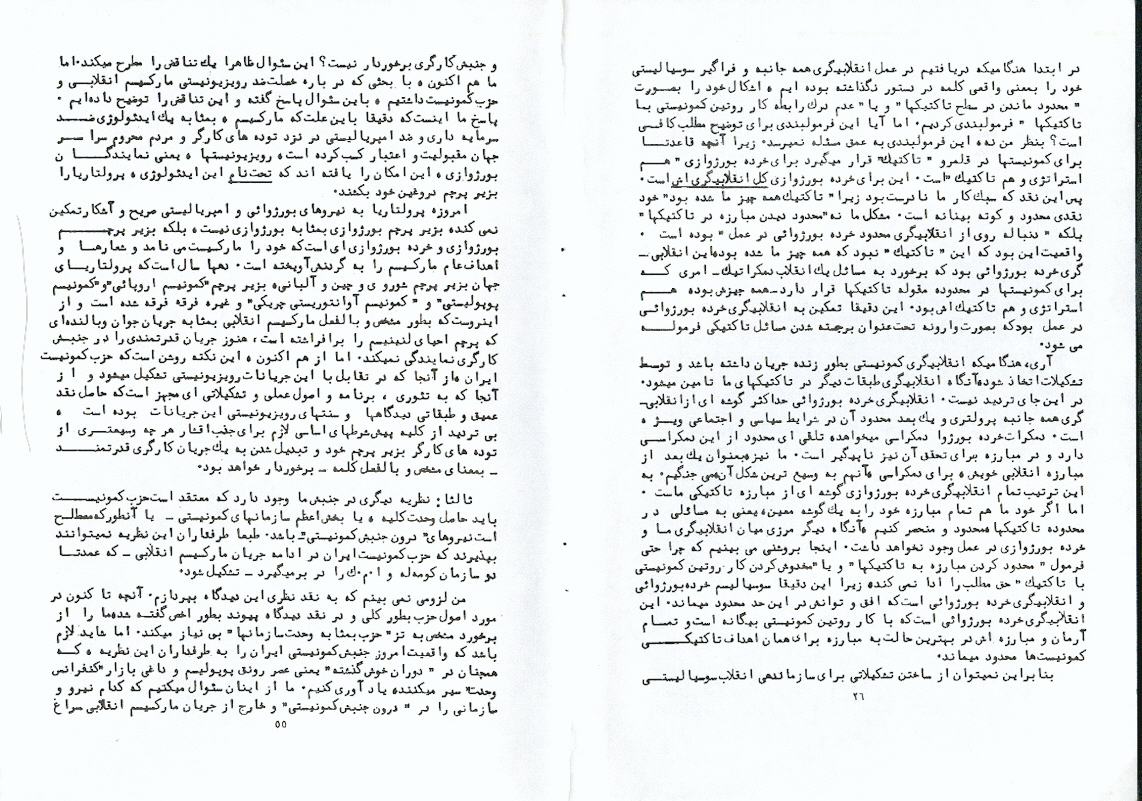 در ابتدا هنگامیکه دریافتیم در عمل انقلابیگری همه جانبه و فراگیر سوسیالیستی
خود را بمعنی واقعی کلمه در دستور نگذاشته بوده ایم ه اشکال خود را بصورت
"محدود ماندن در سطح تاکتیکها" و یا "عدم درک رابطه کار روتین کمونیستی با
تاکتیکها" فرمولبندی کردیم. اما آیا این فرمولبندی برای توضیح مطلب کافی
است؟ بنظر من نه ه این فرمولبندی به عمق مسئله نمیرسد. زیرا آنچه قاعدتا
برای کمونیستها در قلمرو "تاکتیک" قرار میگیرد برای خرده بورژوازی "هم
استراتژی و هم تاکتیک" است. این برای خرده بورژوازی کل انقلابیگری اش است.
پس این نقد که سبک کار ما نادرست بود زیرا "تاکتیک همه چیز ما شده بود" خود
نقدی محدود و کوته بینانه است. مشکل ما نه "محدود دیدن مبارزه در تاکتیکها"
بلکه "دنباله روی از انقلابیگری محدود خرده بورژوائی در عمل" بوده است .
واقعیت این بود که این "تاکتیک" نبود که همه چیز ما شده بود ه این انقلابی-
گری خرده بورژوائی بود که برخورد به مسائل یک انقلاب دمکراتیک - امری که
برای کمونیستها در محدوده مقوله تاکتیکها قرار دارد - همه چیزش بوده هم
استراتژی و هم تاکتیک اش بود. این دقیقا تمکین به انقلابیگری خرده بورژوائی
در عمل بود که بصورت وارونه تحت عنوان برجسته شدن مسائل تاکتیکی فرموله
می شود.
آری، هنگامیکه انقلابیگری کمونیستی بطور زنده جریان داشته باشد و توسط
تشکیلات اتخاذ شود ه آنگاه انقلابیگری طبقات دیگر در تاکتیکهای ما تامین میشود.
در این جای تردید نیست. انقلابیگری خرده بورژوائی حداکثر گوشه ای از انقلابی-
گری همه جانبه پرولتری و یک بعد محدود آن در شرایط سیاسی و اجتماعی ویژه
است. دمکرات خرده بورژوا دمکراسی میخواهد ه تلقی ای محدود از این دمکراسی
دارد و در مبارزه برای تحقق آن نیز ناپیگیر است. ما نیز ه بعنوان یک بعد از
مبارزه انقلابی خویش ه برای دمکراسی ه آنهم به وسیع ترین شکل آن ه می جنگیم. به
این ترتیب تمام انقلابیگری خرده بورژوازی گوشه ای از مبارزه تاکتیکی ماست .
اما اگر خود ما هم تمام مبارزه خود را به یک گوشه معین، یعنی به مسائلی در
محدوده تاکتیکها ه محدود و منحصر کنیم ه آنگاه دیگر مرزی میان انقلابیگری ما و
خرده بورژوازی در عمل وجود نخواهد داشت. اینجا بروشنی می بینیم که چرا حتی
فرمول "محدود کردن مبارزه به تاکتیکها" و یا "مخدوش کردن کار روتین کمونیستی
با تاکتیک" حق مطلب را ادا نمی کند ه زیرا این دقیقا سوسیالیسم خرده بورژوائی
و انقلابیگری خرده بورژوائی است که افق و توانش در این حد محدود میماند. این
انقلابیگری خرده بورژوائی است که با کار روتین کمونیستی بیگانه است و تمام
آرمان و مبارزه اش در بهترین حالت به مبارزه برای همان اهداف تاکتیکی
کمونیست‌ها محدود میماند.
بنابراین نمیتوان از ساختن تشکیلاتی برای سازماندهی انقلاب سوسیالیستی
۲۶
و جنبش کارگری برخوردار نیست؟ این سئوال ظاهرا یک تناقض را مطرح میکند. اما
ما هم اکنون ه با بحثی که در باره خصلت ضد رویزیونیستی مارکسیسم انقلابی و
حزب کمونیست داشتیم ه باین سئوال پاسخ گفته و این تناقض را توضیح داده ایم .
پاسخ ما اینست که دقیقا باین علت که مارکسیسم ه بمثابه یک ایدئولوژی ضد
سرمایه داری و ضد امپریالیستی در نزد توده های کارگر و مردم محروم سراسر
جهان مقبولیت و اعتبار کسب کرده است ه رویزیونیستها ه یعنی نمایندگان
بورژوازی ه این امکان را یافته اند که تحت نام این ایدئولوژی ه پرولتاریا را
بزیر پرچم دروغین خود بکشند.
امروزه پرولتاریا به نیروهای بورژوائی و امپریالیستی صریح و آشکار تمکین
نمی کند ه بزیر پرچم بورژوازی بمثابه بورژوازی نیست ه بلکه بزیر پرچم
بورژوازی و خرده بورژوازی ای است که خود را مارکسیست می نامد و شعارها و
اهداف عام مارکسیسم را به گردنش آویخته است. دهها سال است که پرولتاریای
جهان بزیر پرچم شوروی و چین و آلبانی ه بزیر پرچم "کمونیسم اروپائی" و "کمونیسم
پوپولیستی" و "کمونیسم آوانتوریستی چریکی" و غیره فرقه فرقه شده است و از
اینروست که بطور مشخص و بالفعل مارکسیسم انقلابی بمثابه جریان جوان و بالنده ای
که پرچم احیای لنینیسم را برافراشته است، هنوز جریان قدرتمندی را در جنبش
کارگری نمایندگی نمیکند. اما از هم اکنون ه این نکته روشن است که حزب کمونیست
ایران ه از آنجا که در تقابل با این جریانات رویزیونیستی تشکیل میشود و از
آنجا که به تئوری ، برنامه و اصول عملی و تشکیلاتی ای مجهز است که حاصل نقد
عمیق و طبقاتی دیدگاهها و سنتهای رویزیونیستی این جریانات بوده است ه
بی تردید از کلیه پیش شرطهای اساسی لازم برای جذب اقشار هر چه وسیعتری از
توده های کارگر بزیر پرچم خود و تبدیل شدن به یک جریان کارگری قدرتمند
- بمعنای مشخص و بالفعل کلمه - برخوردار خواهد بود.
ثالثا: نظریه دیگری در جنبش ما وجود دارد که معتقد است حزب کمونیست
باید حاصل وحدت کلیه ه یا بخش اعظم سازمانهای کمونیستی - یا آنطور که مصطلح
است نیروهای "درون جنبش کمونیستی" - باشد. طبعا طرفداران این نظریه نمیتوانند
بپذیرند که حزب کمونیست ایران در ادامه جریان مارکسیسم انقلابی - که عمدتا
دو سازمان کومه‌له و ا.م.ک را در برمیگیرد - تشکیل شود.
من لزومی نمی بینم که به نقد نظری این دیدگاه بپردازم. آنچه تا کنون در
مورد اصول حزب بطور کلی و در نقد دیدگاه پیوند بطور اخص گفته شد ه ما را از
برخورد مشخص به تز "حزب بمثابه وحدت سازمانها" بی نیاز میکند. اما شاید لازم
باشد که واقعیت امروز جنبش کمونیستی ایران را به طرفداران این نظریه ه که
همچنان در "دوران خوش گذشته" یعنی عصر رونق پوپولیسم و داغی بازار "کنفرانس
وحدت" سیر میکنند ه یادآوری کنیم. ما از اینان سئوال میکنیم که کدام نیرو و
سازمانی را در "درون جنبش کمونیستی" و خارج از جریان مارکسیسم انقلابی سراغ
۵۵